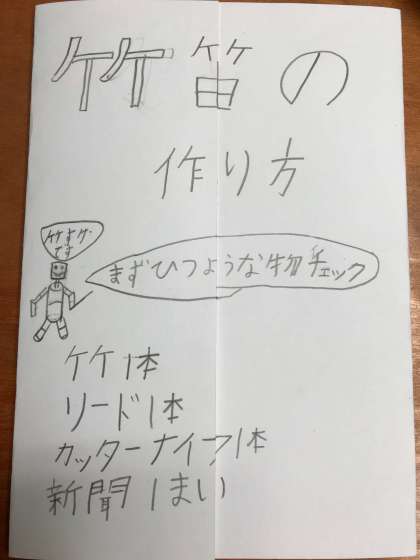 竹笛の
作り方
竹すけ
です
まずひつような物チェック
竹1体
リード1本
カッターナイフ1本
新聞1まい